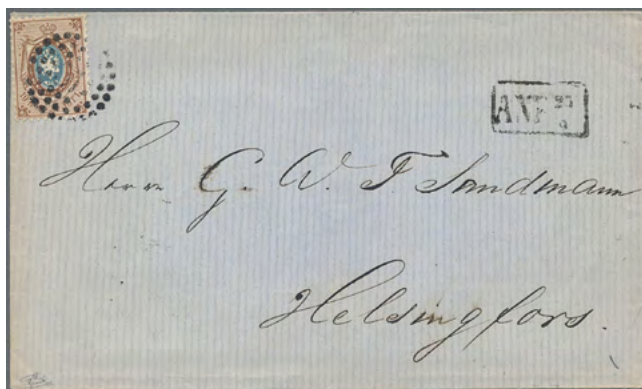 ANK 25
9
Herrn G. W. F. Sandmann
Helsingfors.